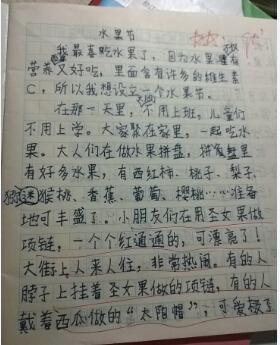 水果节
我最喜吃水果了，因为水果有
营养又好吃，里面含有许多的维生素
C，所以我想设立一个水果节。
在那一天里，不用上班，儿童们
不用上学。大家聚在家里，一起吃水
果。大人们在做水果拼盘，拼盘里
有好多水果，有西红柿、桃子、梨子、
猕猴桃、香蕉、葡萄、樱桃……准备
地可丰盛了。小朋友们在用圣女果做
项链，一个个红通通的，可漂亮了！
大街上人来人往，非常热闹，有的人
脖子上挂着圣女果做的项链，有的人
戴着西瓜做的“太阳帽”，可爱极了